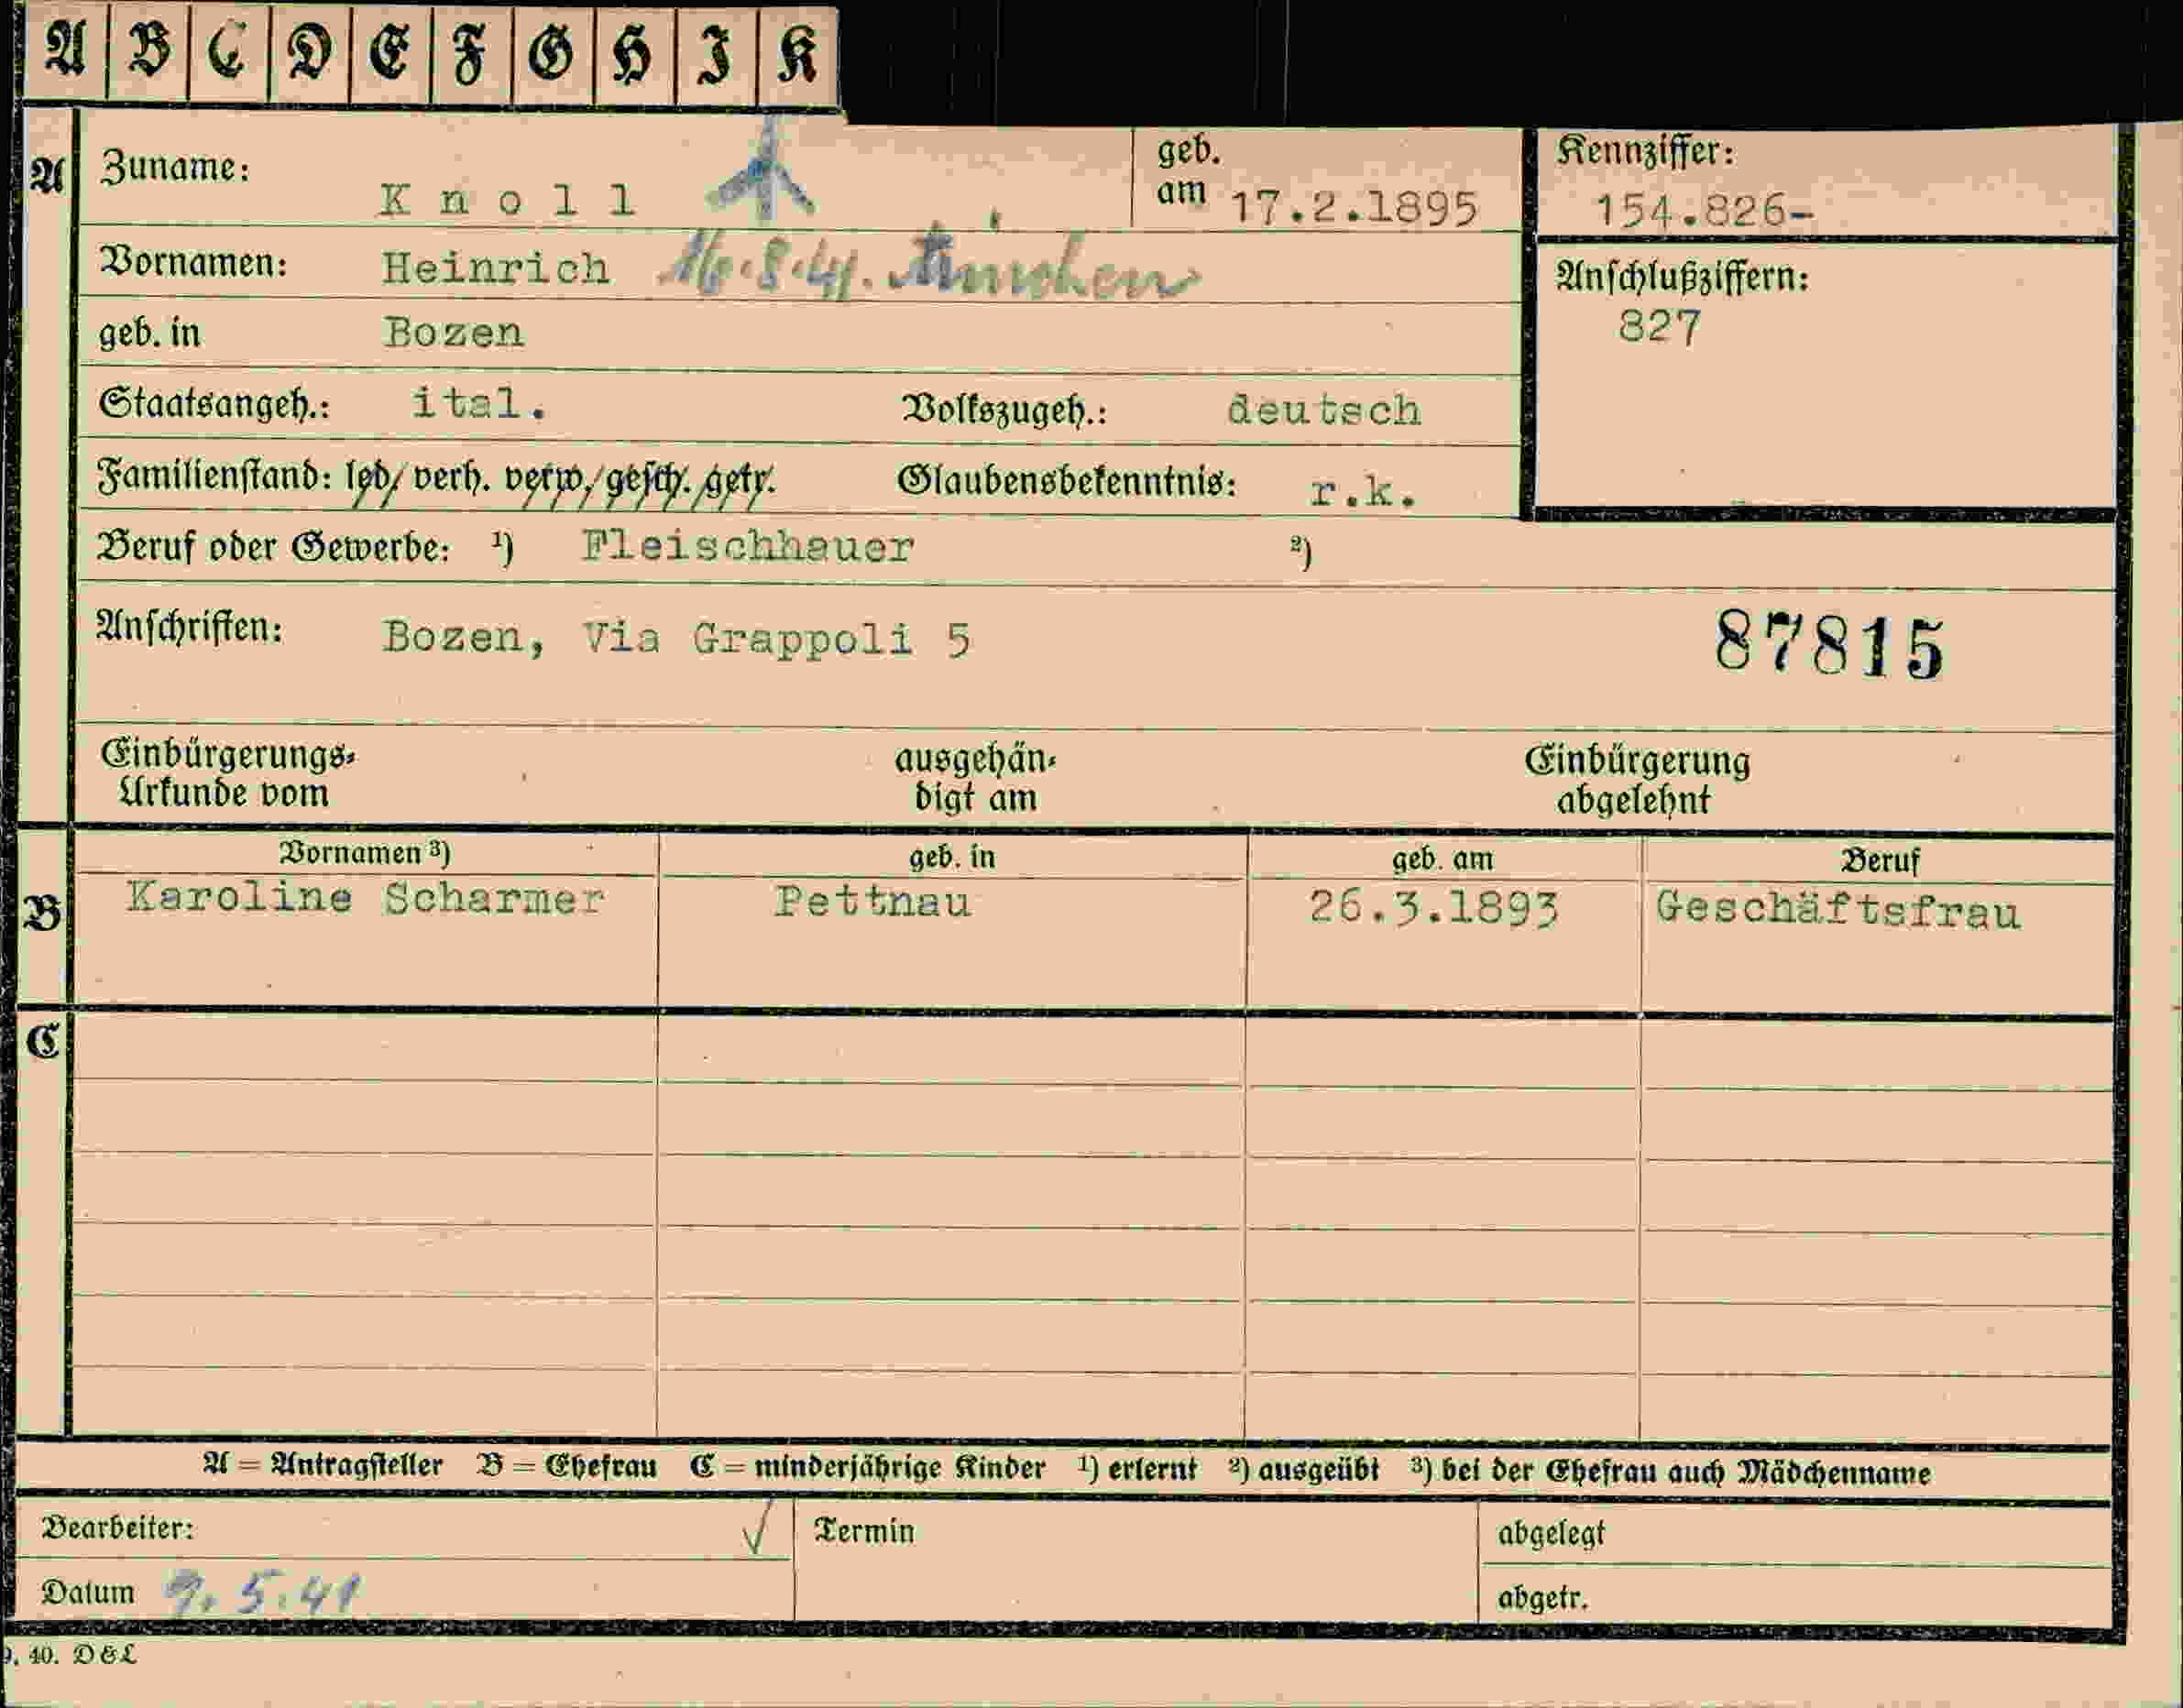 A B C D E F G H I K
A Zuname: Knoll geb. am 17.2.1895 Kennziffer: 154.826-
Vornamen: Heinrich 16.8.41. München
Anschlußziffern:
827
geb. in Bozen
Staatsangeh.: ital. Volkszugeh.: deutsch
Familienstand: led. verh. verw. gesch. getr. Glaubensbekenntnis: r.k.
Beruf oder Gewerbe: ¹) Fleischhauer ²)
Anschriften: Bozen, Via Grappoli 5 87815
Einbürgerungs-Urkunde vom ausgehändigt am Einbürgerung abgelehnt
Vornamen ³) geb. in geb. am Beruf
B Karoline Scharmer Pettnau 26.3.1893 Geschäftsfrau
C
A = Antragsteller B = Ehefrau C = minderjährige Kinder ¹) erlernt ²) ausgeübt ³) bei der Ehefrau auch Mädchenname
Bearbeiter: √ Termin abgelegt
Datum 9.5.41 abgetr.
40. D&L